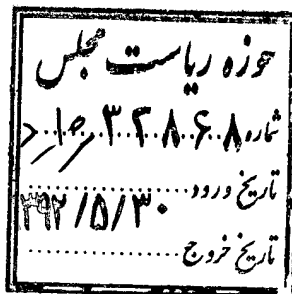 حوزه ریاست مجلس
شماره ۳۲۸۶۸
تاریخ ورود
۳۹۲/۵/۳۰
تاریخ خروج